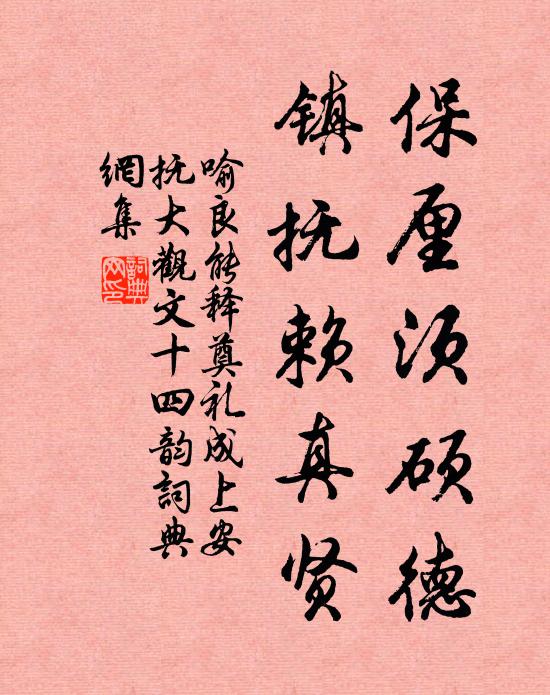 保厘须硕德
镇抚赖真贤
喻良能释奠礼成上安
抚大觀文十四韵詞典
網集
詞典
网印